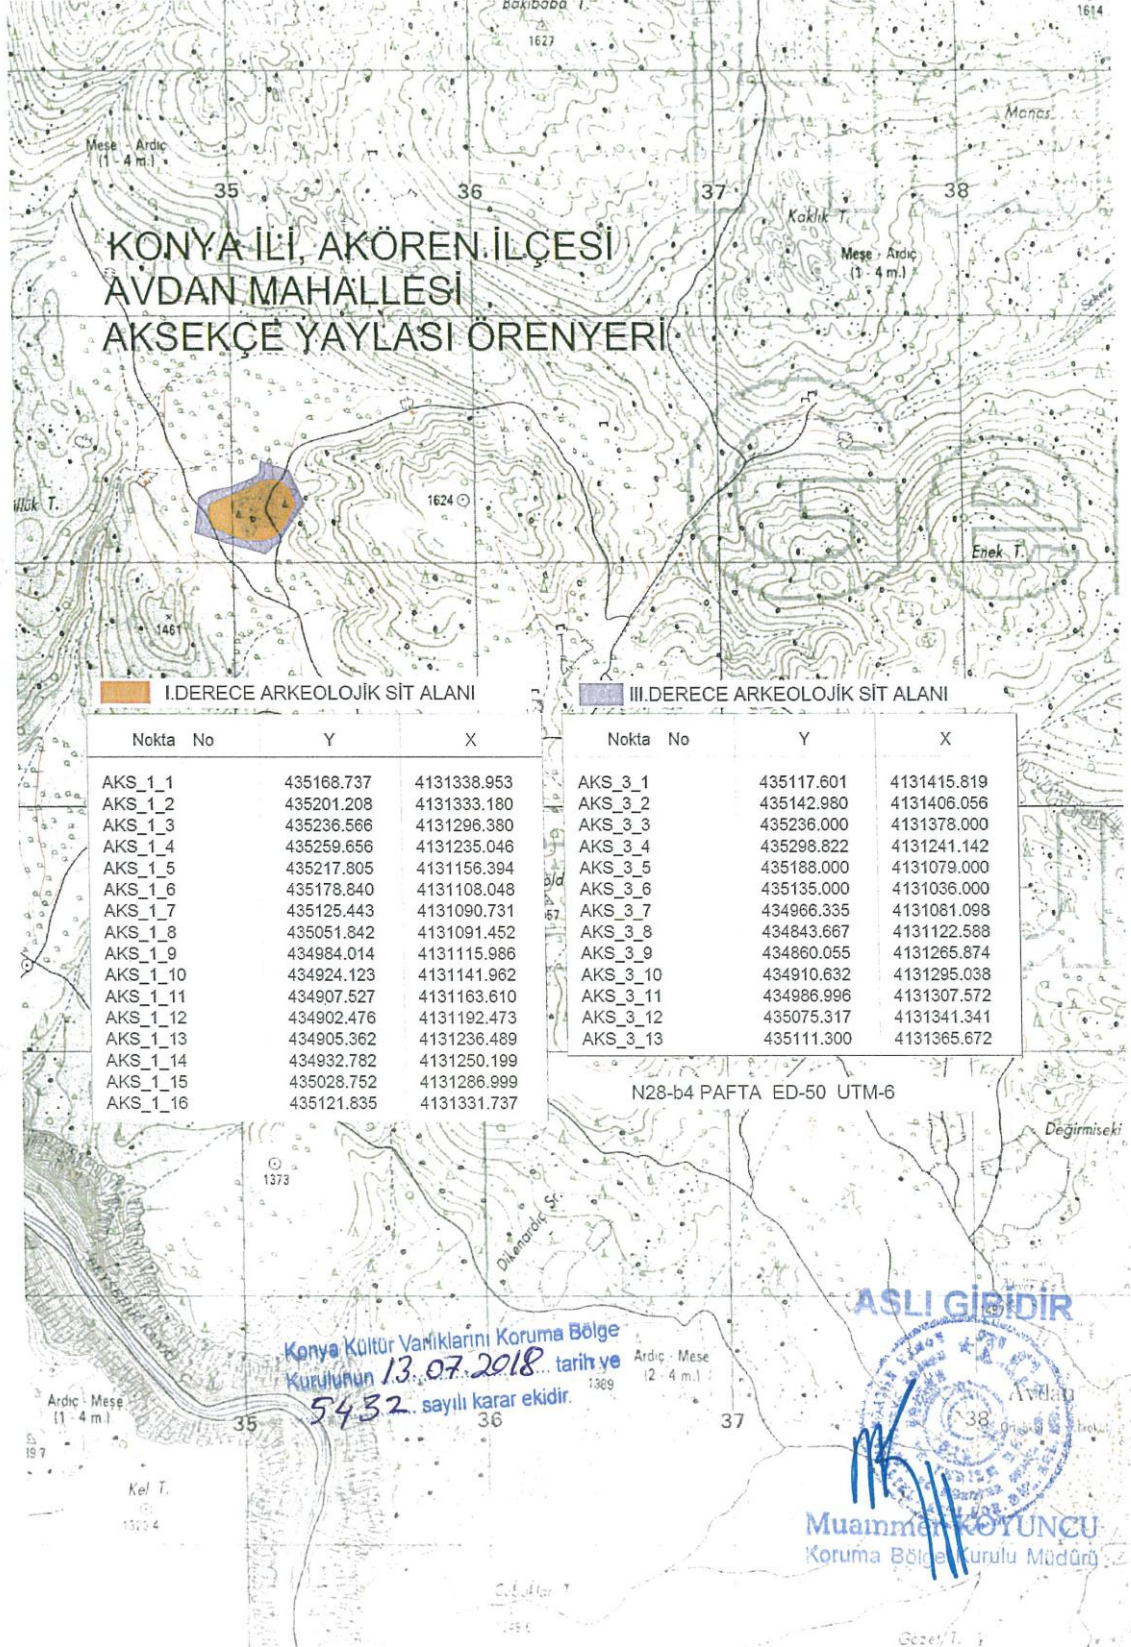 Bakıbaba T.
1627
1614
Manas
Meşe - Ardıç
(1 - 4 m.)
35 36 37 38
Kaklık T.
Meşe - Ardıç
(1 - 4 m.)
KONYA İLİ, AKÖREN İLÇESİ
AVDAN MAHALLESİ
AKSEKÇE YAYLASI ÖRENYERİ
1624
Enek T.
1461
I.DERECE ARKEOLOJİK SİT ALANI
Nokta No Y X
AKS_1_1 435168.737 4131338.953
AKS_1_2 435201.208 4131333.180
AKS_1_3 435236.566 4131296.380
AKS_1_4 435259.656 4131235.046
AKS_1_5 435217.805 4131156.394
AKS_1_6 435178.840 4131108.048
AKS_1_7 435125.443 4131090.731
AKS_1_8 435051.842 4131091.452
AKS_1_9 434984.014 4131115.986
AKS_1_10 434924.123 4131141.962
AKS_1_11 434907.527 4131163.610
AKS_1_12 434902.476 4131192.473
AKS_1_13 434905.362 4131236.489
AKS_1_14 434932.782 4131250.199
AKS_1_15 435028.752 4131286.999
AKS_1_16 435121.835 4131331.737
III.DERECE ARKEOLOJİK SİT ALANI
Nokta No Y X
AKS_3_1 435117.601 4131415.819
AKS_3_2 435142.980 4131406.056
AKS_3_3 435236.000 4131378.000
AKS_3_4 435298.822 4131241.142
AKS_3_5 435188.000 4131079.000
AKS_3_6 435135.000 4131036.000
AKS_3_7 434966.335 4131081.098
AKS_3_8 434843.667 4131122.588
AKS_3_9 434860.055 4131265.874
AKS_3_10 434910.632 4131295.038
AKS_3_11 434986.996 4131307.572
AKS_3_12 435075.317 4131341.341
AKS_3_13 435111.300 4131365.672
N28-b4 PAFTA ED-50 UTM-6
Değirmiseki
1373
Dikenardıç Sr.
ASLI GİBİDİR
Konya Kültür Varlıklarını Koruma Bölge
Kurulunun 13.07.2018 tarih ve
5432 sayılı karar ekidir.
Ardıç - Meşe
(2 - 4 m.)
1389
Ardıç - Meşe
(1 - 4 m.)
Avdan
35 36 37 38
Kel T.
Muammer KOYUNCU
Koruma Bölge Kurulu Müdürü